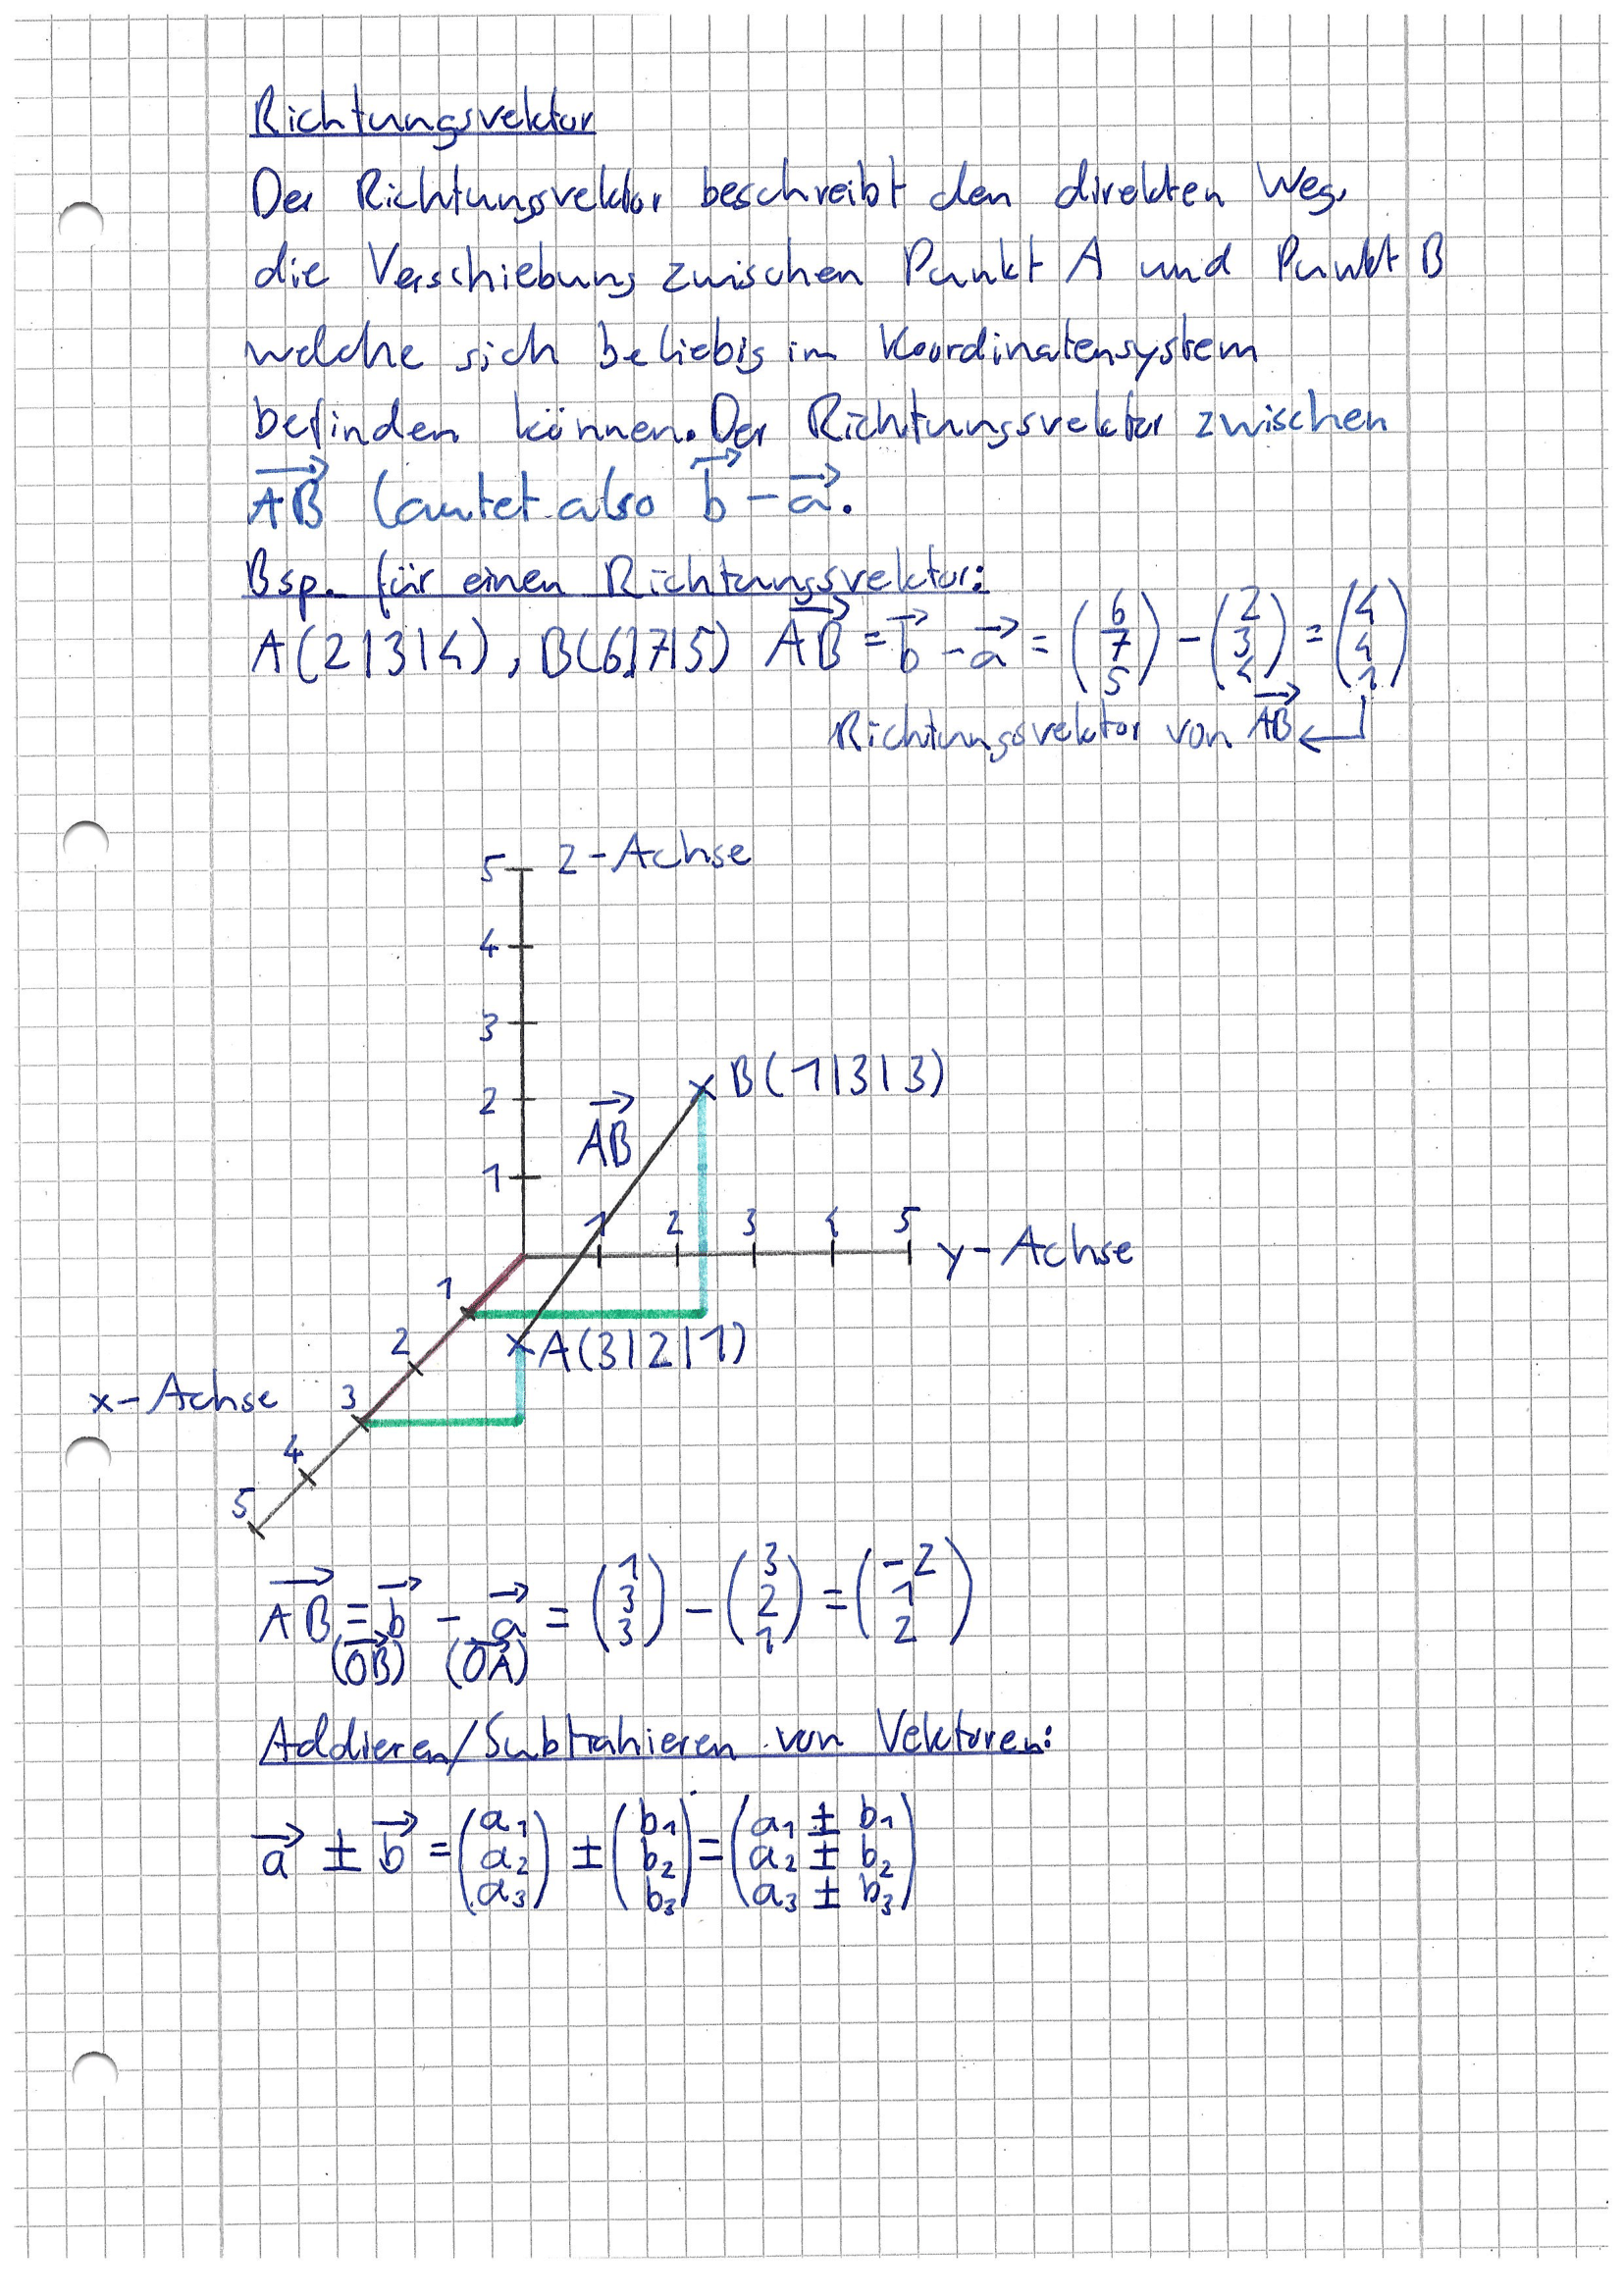 Richtungsvektor
Der Richtungsvektor beschreibt den direkten Weg,
die Verschiebung zwischen Punkt A und Punkt B
welche sich beliebig im Koordinatensystem
befinden können. Der Richtungsvektor zwischen
\overrightarrow{AB} lautet also \vec{b} - \vec{a}.
Bsp. für einen Richtungsvektor:
A(2|3|4), B(6|7|5) \overrightarrow{AB} = \vec{b} - \vec{a} = (6 7 5) - (2 3 4) = (4 4 1)
Richtungsvektor von \overrightarrow{AB} ←
5 z-Achse
4
3
B(1|3|3)
2
\overrightarrow{AB}
1
1 2 3 4 5
y-Achse
1
A(3|2|1)
2
x-Achse 3
4
5
\overrightarrow{AB} = \vec{b} - \vec{a} = (1 3 3) - (3 2 1) = (-2 1 2)
(\overrightarrow{OB}) (\overrightarrow{OA})
Addieren/Subtrahieren von Vektoren:
\vec{a} ± \vec{b} = (a₁ a₂ a₃) ± (b₁ b₂ b₃) = (a₁ ± b₁ a₂ ± b₂ a₃ ± b₃)